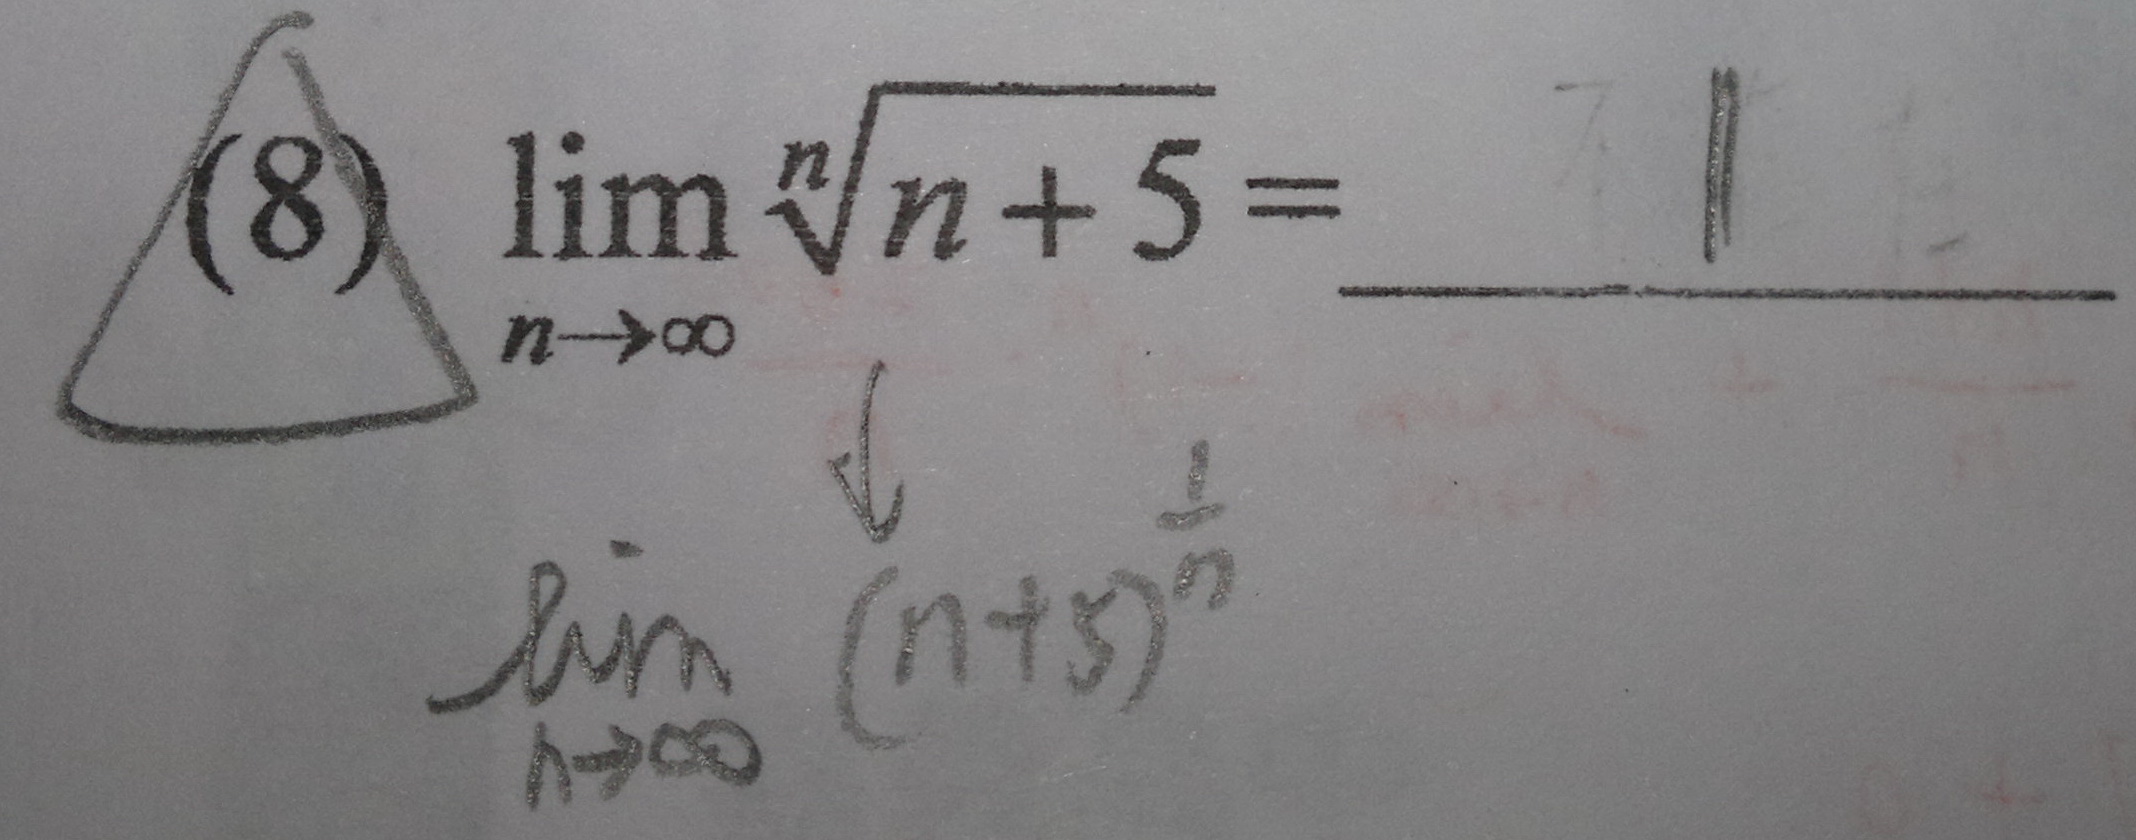 (8) lim n→∞ ⁿ√(n + 5) = 1
lim n→∞ (n+5)^(1/n)